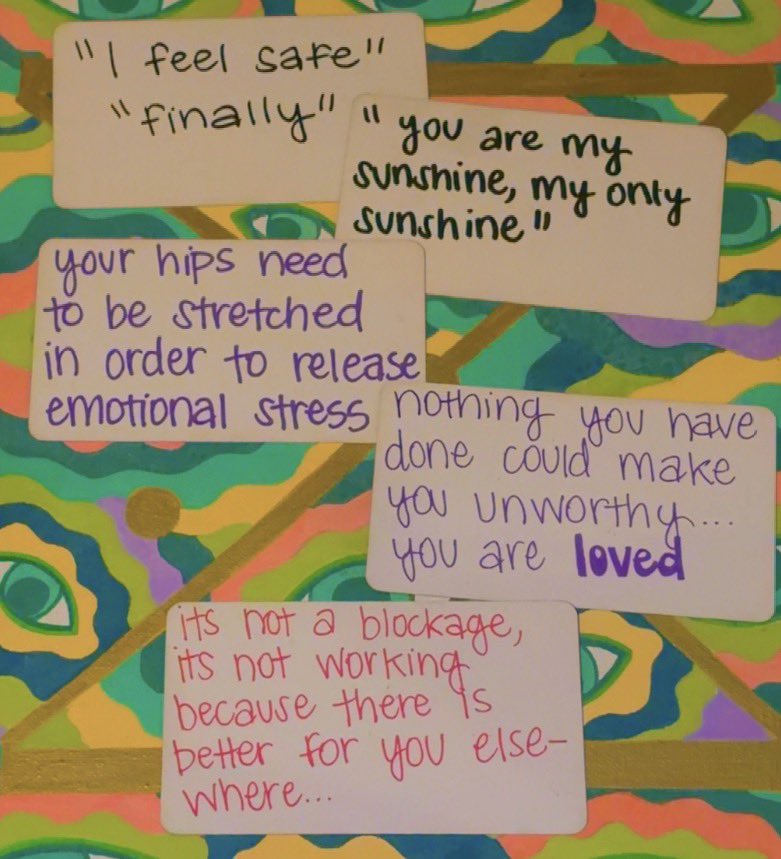 "I feel safe"
"finally"
"you are my
sunshine, my only
sunshine"
your hips need
to be stretched
in order to release
emotional stress
nothing you have
done could make
you unworthy...
you are loved
its not a blockage,
its not working
because there is
better for you else-
where...